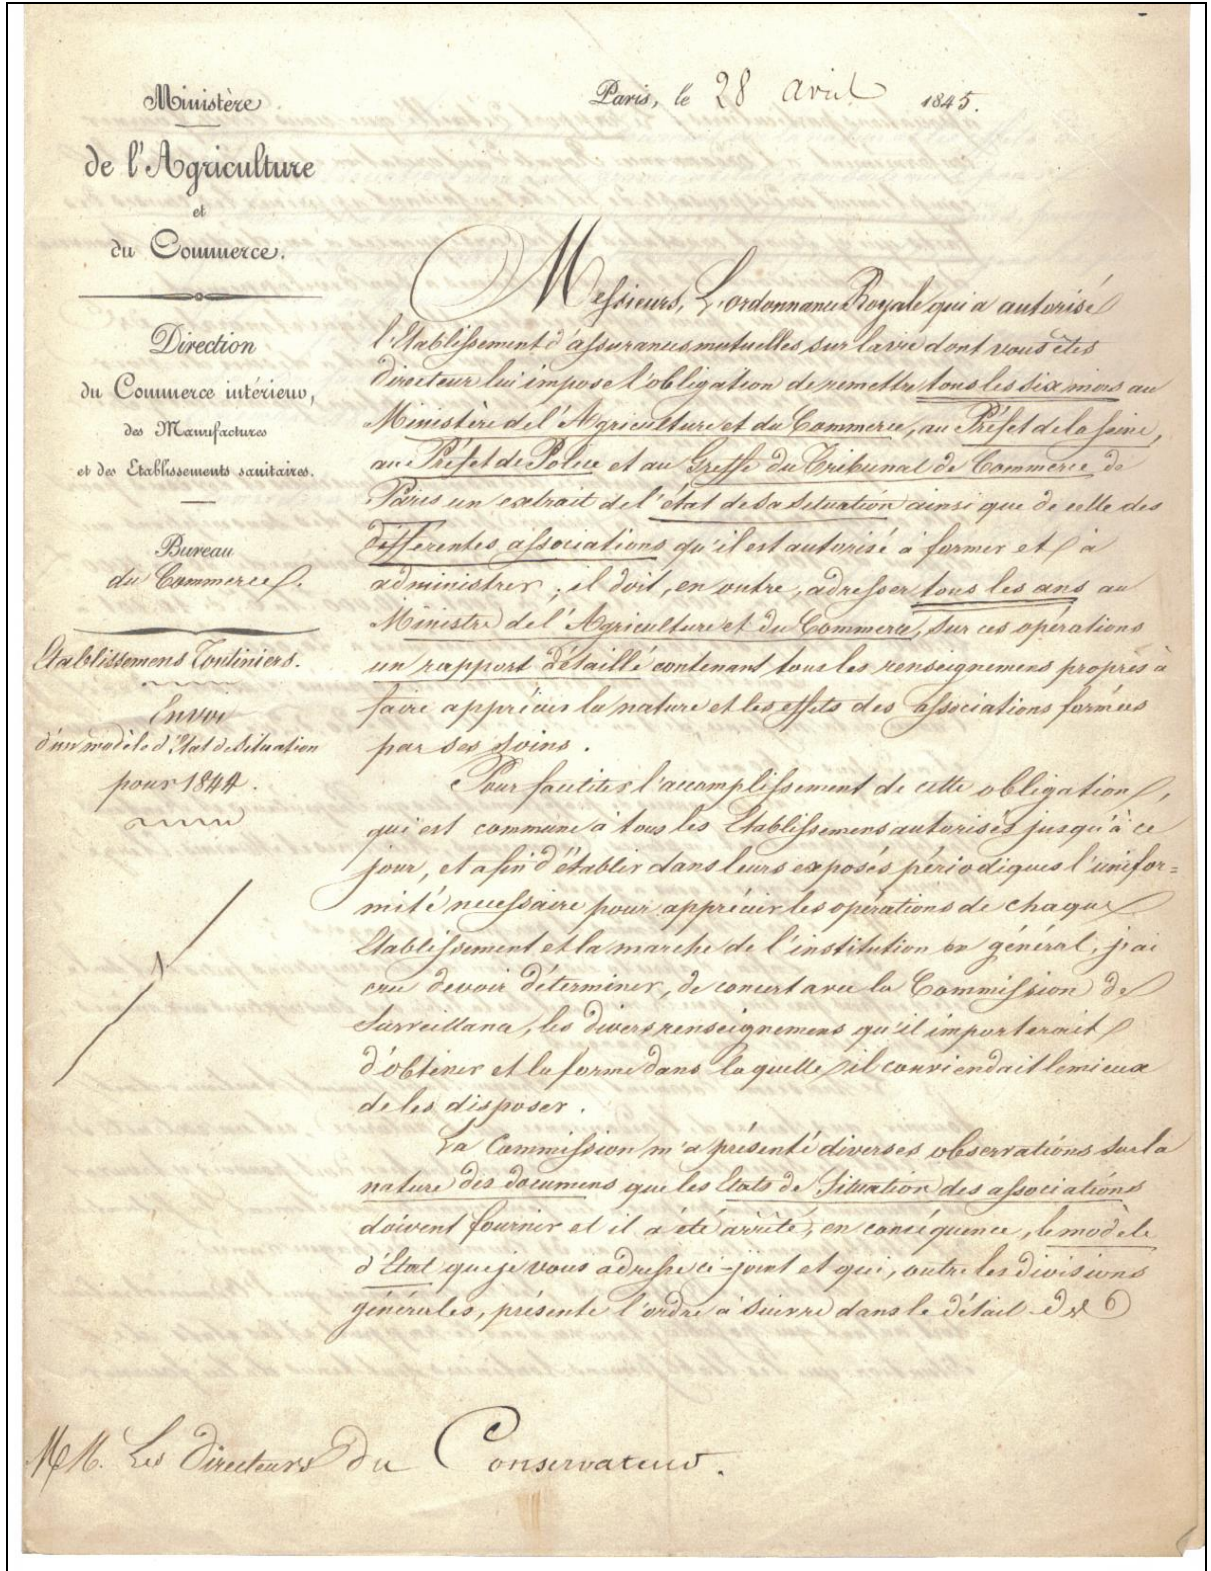 Ministère
de l'Agriculture
et
du Commerce.
Direction
du Commerce intérieur,
des Manufactures
et des Etablissements sanitaires.
Bureau
du Commerce.
Etablissemens Tontiniers.
Envoi
d'un modèle d'Etat de Situation
pour 1844.
Paris, le 28 avril 1845.
Messieurs, L'ordonnance Royale qui a autorisé
l'Etablissement d'assurances mutuelles sur la vie dont vous êtes
directeur lui impose l'obligation de remettre tous les six mois au
Ministère de l'Agriculture et du Commerce, au Préfet de la Seine,
au Préfet de Police et au Greffe du Tribunal de Commerce de
Paris un extrait de l'état de sa situation ainsi que de celle des
différentes associations qu'il est autorisé à former et à
administrer ; il doit, en outre, adresser tous les ans au
Ministre de l'Agriculture et du Commerce, sur ces opérations
un rapport détaillé contenant tous les renseignemens propres à
faire apprécier la nature et les effets des associations formées
par ses soins.
Pour faciliter l'accomplissement de cette obligation,
qui est commune à tous les Etablissemens autorisés jusqu'à ce
jour, et afin d'établir dans leurs exposés périodiques l'unifor=
mité nécessaire pour apprécier les opérations de chaque
Etablissement et la marche de l'institution en général, j'ai
cru devoir déterminer, de concert avec la Commission de
Surveillance, les divers renseignemens qu'il importerait
d'obtenir et la forme dans laquelle il conviendrait le mieux
de les disposer.
La Commission m'a présenté diverses observations sur la
nature des documens que les Etats de Situation des associations
doivent fournir et il a été arrêté, en conséquence, le modèle
d'Etat que je vous adresse ci-joint et qui, outre les divisions
générales, présente l'ordre à suivre dans le détail des
MM. Les Directeurs du Conservateur.